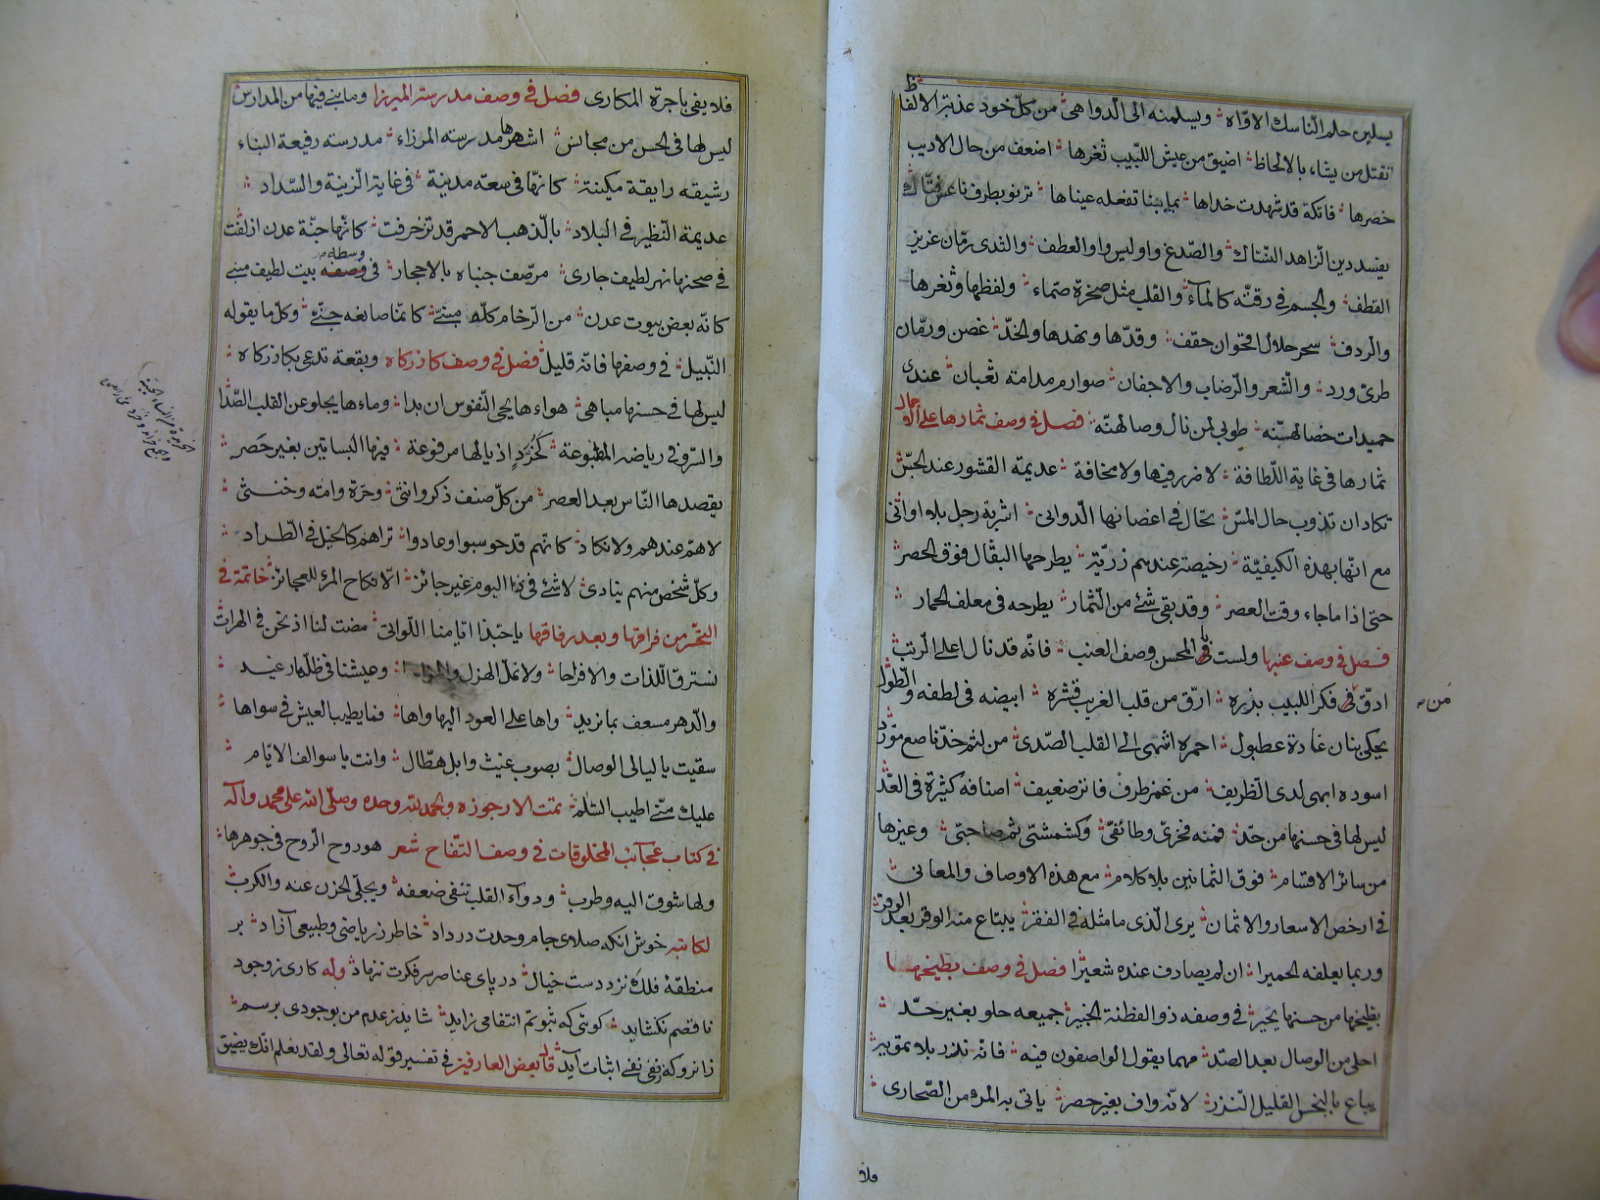 يسلبن حلم الناسك الاواه ؛ ويسلمنه الى الدواهى ؛ من كل خود عذبة الالفاظ
تقتل من يشاء بالالحاظ ؛ اضيق من عيش اللبيب ثغرها ؛ اضعف من حال الاديب
خصرها ؛ فاتكة قد شهدت خداها ؛ بما بنا تفعله عيناها ؛ ترنو بطرف ناعس فتاك
يفسد دين الزاهد النساك ؛ والصدغ واو ليس واو العطف ؛ والثدى رمان عزيز
القطف ؛ والجسم فى رقته كالماء ؛ والقلب مثل صخرة صماء ؛ ولفظها وثغرها
والردف ؛ سحر حلال اقحوان حقف ؛ وقدها ونهدها والخد ؛ غصن ورمان
طرى ورد ؛ والشعر والرضاب والاجفان ؛ صوارم مدامة ثعبان ؛ عندى
حميدات خصالهنه ؛ طوبى لمن نال وصالهنه ؛ فصل فى وصف ثمارها على الاجمال
ثمارها فى غاية اللطافة ؛ لا ضرر فيها ولا مخافة ؛ عديمة القشور عند الحس
تكاد ان تذوب حال المس ؛ تخال فى اغصانها الدوانى ؛ اشربة رجل بلا اوانى
مع انها بهذه الكيفية ؛ رخيصة عندهم زرية ؛ يطرحها البقال فوق الحصر
حتى اذا ما جاء وقت العصر ؛ وقد بقى شئ من الثمار ؛ يطرحه فى معلف الحمار ؛
فصل فى وصف عنبها ولست فى المحسن وصف العنب ؛ فانه قد نال اعلى الرتب
ادق فى فكر اللبيب بذره ؛ ارق من قلب الغريب قشره ؛ ابيضه فى لطفه والطول
من
يحكى بنان غادة عطبول ؛ احمره اشهى الى القلب الصدى ؛ من لثم خد ناصع مورد
اسوده ابهى لدى الظريف ؛ من غمز طرف فاتر ضعيف ؛ اصنافه كثيرة فى العد
ليس لها فى حسنها من حد ؛ فمنه فخرى وطائفى ؛ وكشمشى ثم صاحبى ؛ وغيرها
من سائر الاقسام ؛ فوق الثمانين بلا كلام ؛ مع هذه الاوصاف والمعانى
فى ارخص الاسعار والاثمان ؛ يرى الذى ما مثله فى الفقر ؛ يبتاع منه الوقر بعد الوقر ؛
وربما يعلفه الحميرا ؛ ان لم يصادف عنده شعيرا فصل فى وصف بطيخها
بطيخها من حسنها يحير ؛ فى وصفه ذو الفطنة الخبير ؛ جميعه حلو بغير حد ؛
احلى من الوصال بعد الصد ؛ مهما يقول الواصفون فيه ؛ فانه نذر بلا تمويه ؛
يباع بالبخس القليل النزر ؛ لانه واف بغير حصر ؛ ياتى به المرء من الصحارى ؛
فلا
فلا يفى باجرة المكارى فصل فى وصف مدرسة الميرزا وما بنى فيها من المدارس
ليس لها فى الحسن من مجانس ؛ اشهرها مدرسة المرزاء ؛ مدرسة رفيعة البناء
رشيقة رايقة مكينة ؛ كانها فى سعة مدينة ؛ فى غاية الزينة والسداد ؛
عديمة النظير فى البلاد ؛ بالذهب الاحمر قد تزخرفت ؛ كانها جنة عدن ازلفت
فى صحنها نهر لطيف جارى ؛ مرصف جنباه بالاحجار ؛ فى وصفه وسطه بيت لطيف مبنى
كانه بعض بيوت عدن ؛ من الرخام كله مبنى ؛ كانما صانعه جنى ؛ وكل ما يقوله
النبيل ؛ فى وصفها فانه قليل فصل فى وصف كازركاه وبقعة تدعى بكازركاه ؛
ليس لها فى حسنها مباهى ؛ هواءها يحيى النفوس ان بدا ؛ وماءها يجلو عن القلب الصدا
والسرو فى رياضه المطبوعة ؛ كخرد اذيالها مرفوعة ؛ فيها البساتين بغير حصر ؛
يقصدها الناس بعد العصر ؛ من كل صنف ذكر وانثى ؛ وحرة وامة وخنثى ؛
لا هم عندهم ولا نكاد ؛ كانهم قد حوسبوا وعادوا ؛ تراهم كالخيل فى الطراد ؛
وكل شخص منهم ينادى ؛ لا شئ فى ذا اليوم غير جائز ؛ الا نكاح المرء للعجائز خاتمة فى
التحسر من فراقها وبعد رفاقها يا حبذا ايامنا اللواتى ؛ مضت لنا اذ نحن فى الهرات
نسترق اللذات والافراحا ؛ ولا نمل الهزل والمزاحا ؛ وعيشنا فى ظلها رغيد ؛
والدهر مسعف بما نريد ؛ واها على العود اليها واها ؛ فما يطيب العيش فى سواها ؛
سقيت يا ليالى الوصال ؛ بصوب غيث وابل هطال ؛ وانت يا سوالف الايام ؛
عليك منى اطيب السلام تمت الارجوزة والحمد لله وحده وصلى الله على محمد واله
فى كتاب عجائب المخلوقات فى وصف التفاح شعر هو روح الروح فى جوهرها ؛
ولها شوق اليه وطرب ؛ ودواء القلب تنفى ضعفه ؛ ويجلى الحزن عنه والكرب
لكاتبه خوش انكه صلاى جام وحدت در داد ؛ خاطر ز رياضى وطبيعى آزاد ؛ بر
منطقۀ فلك نزد دست خيال ؛ در پاى عناصر سر فكرت ننهاد ؛ وله كارى ز وجود
ناقصم نكشايد ؛ كوئى كه ثبوتم انتفا مى زايد ؛ شايد ز عدم من بوجودى برسم ؛
زانرو كه ز نفى نفى اثبات آيد قال بعض العارفين فى تفسير قوله تعالى ولقد نعلم انك يضيق